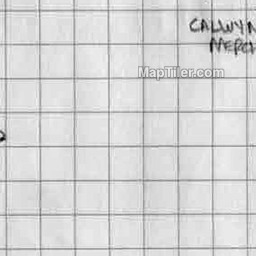 CALWYN
MERCH
MapTiler.com